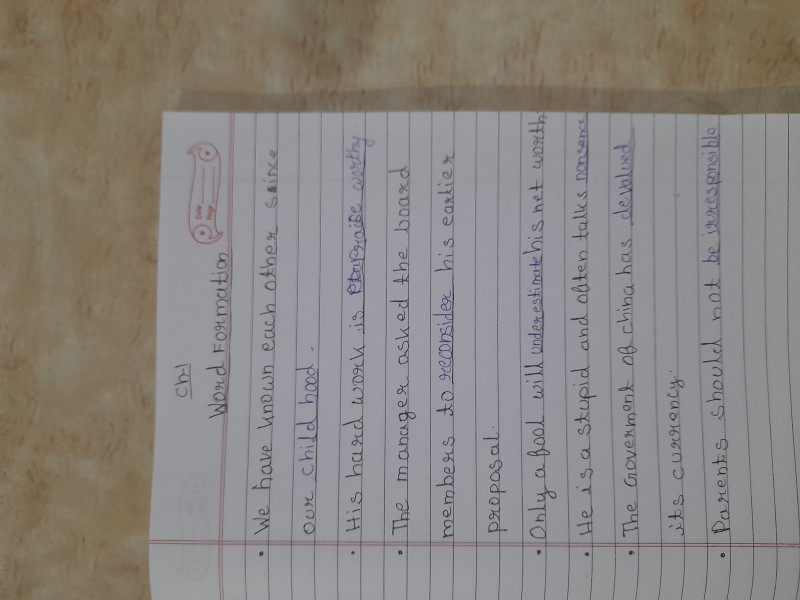 Ch-1
Date
Page
Word Formation
• We have known each other since
our child hood.
• His hard work is praise worthy.
• The manager asked the board
members to reconsider his earlier
proposal.
• Only a fool will underestimate his net worth.
• He is a stupid and often talks nonsence
• The Goverment of china has devalued
its currency.
• Parents should not be irresponsible